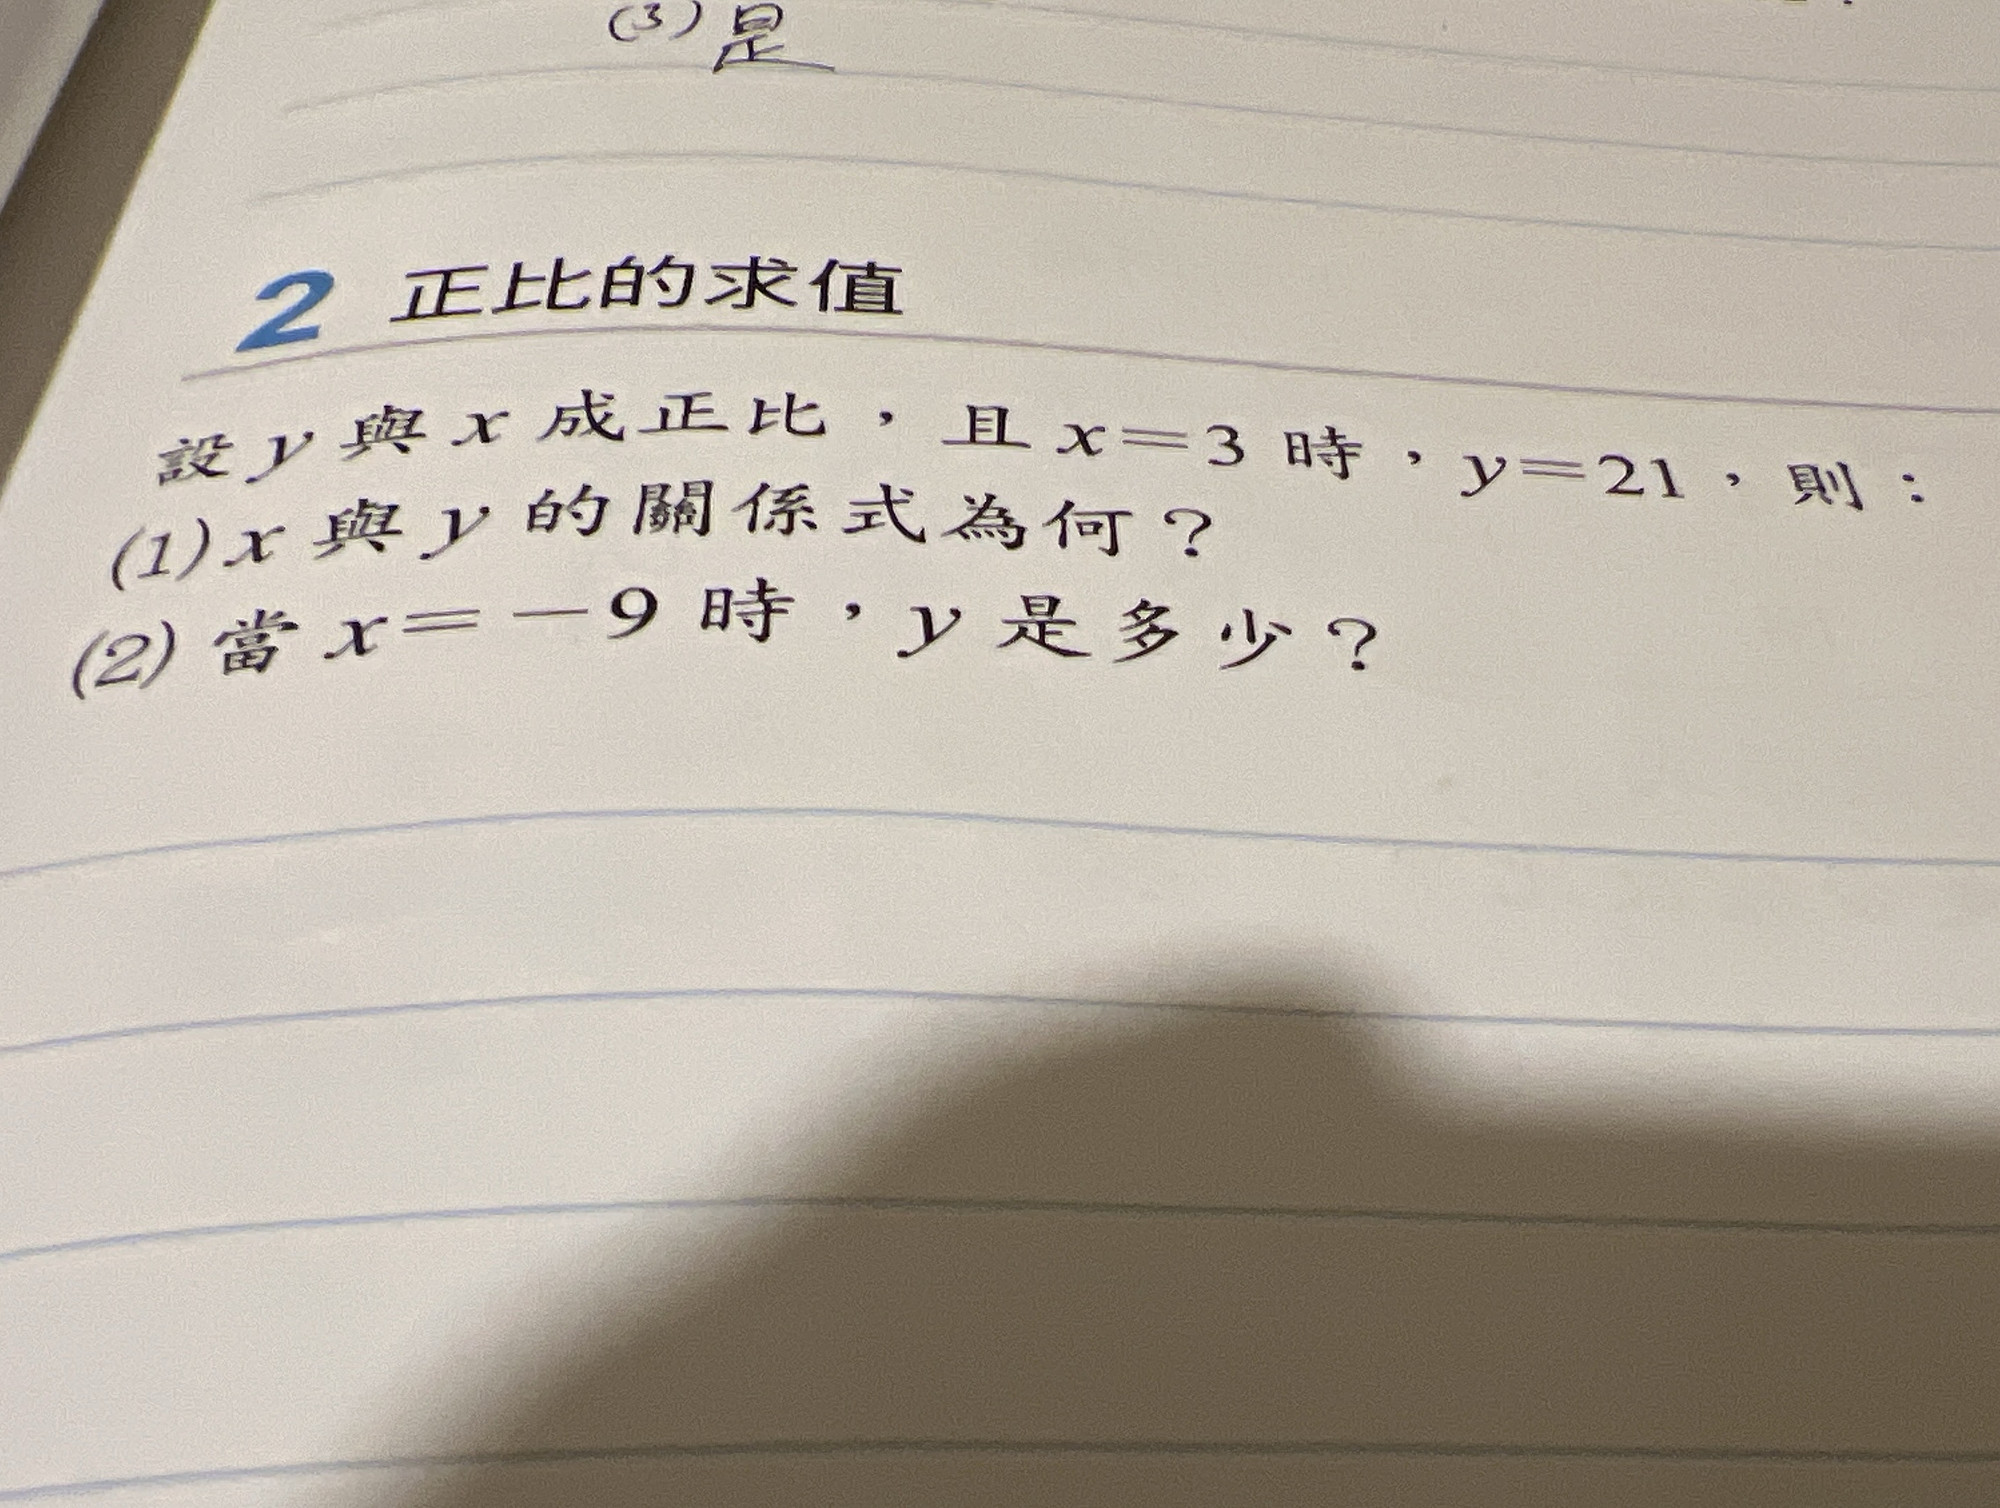 (3)是
2 正比的求值
設 y 與 x 成正比，且 x=3 時，y=21，則：
(1) x 與 y 的關係式為何？
(2) 當 x=-9 時，y 是多少？